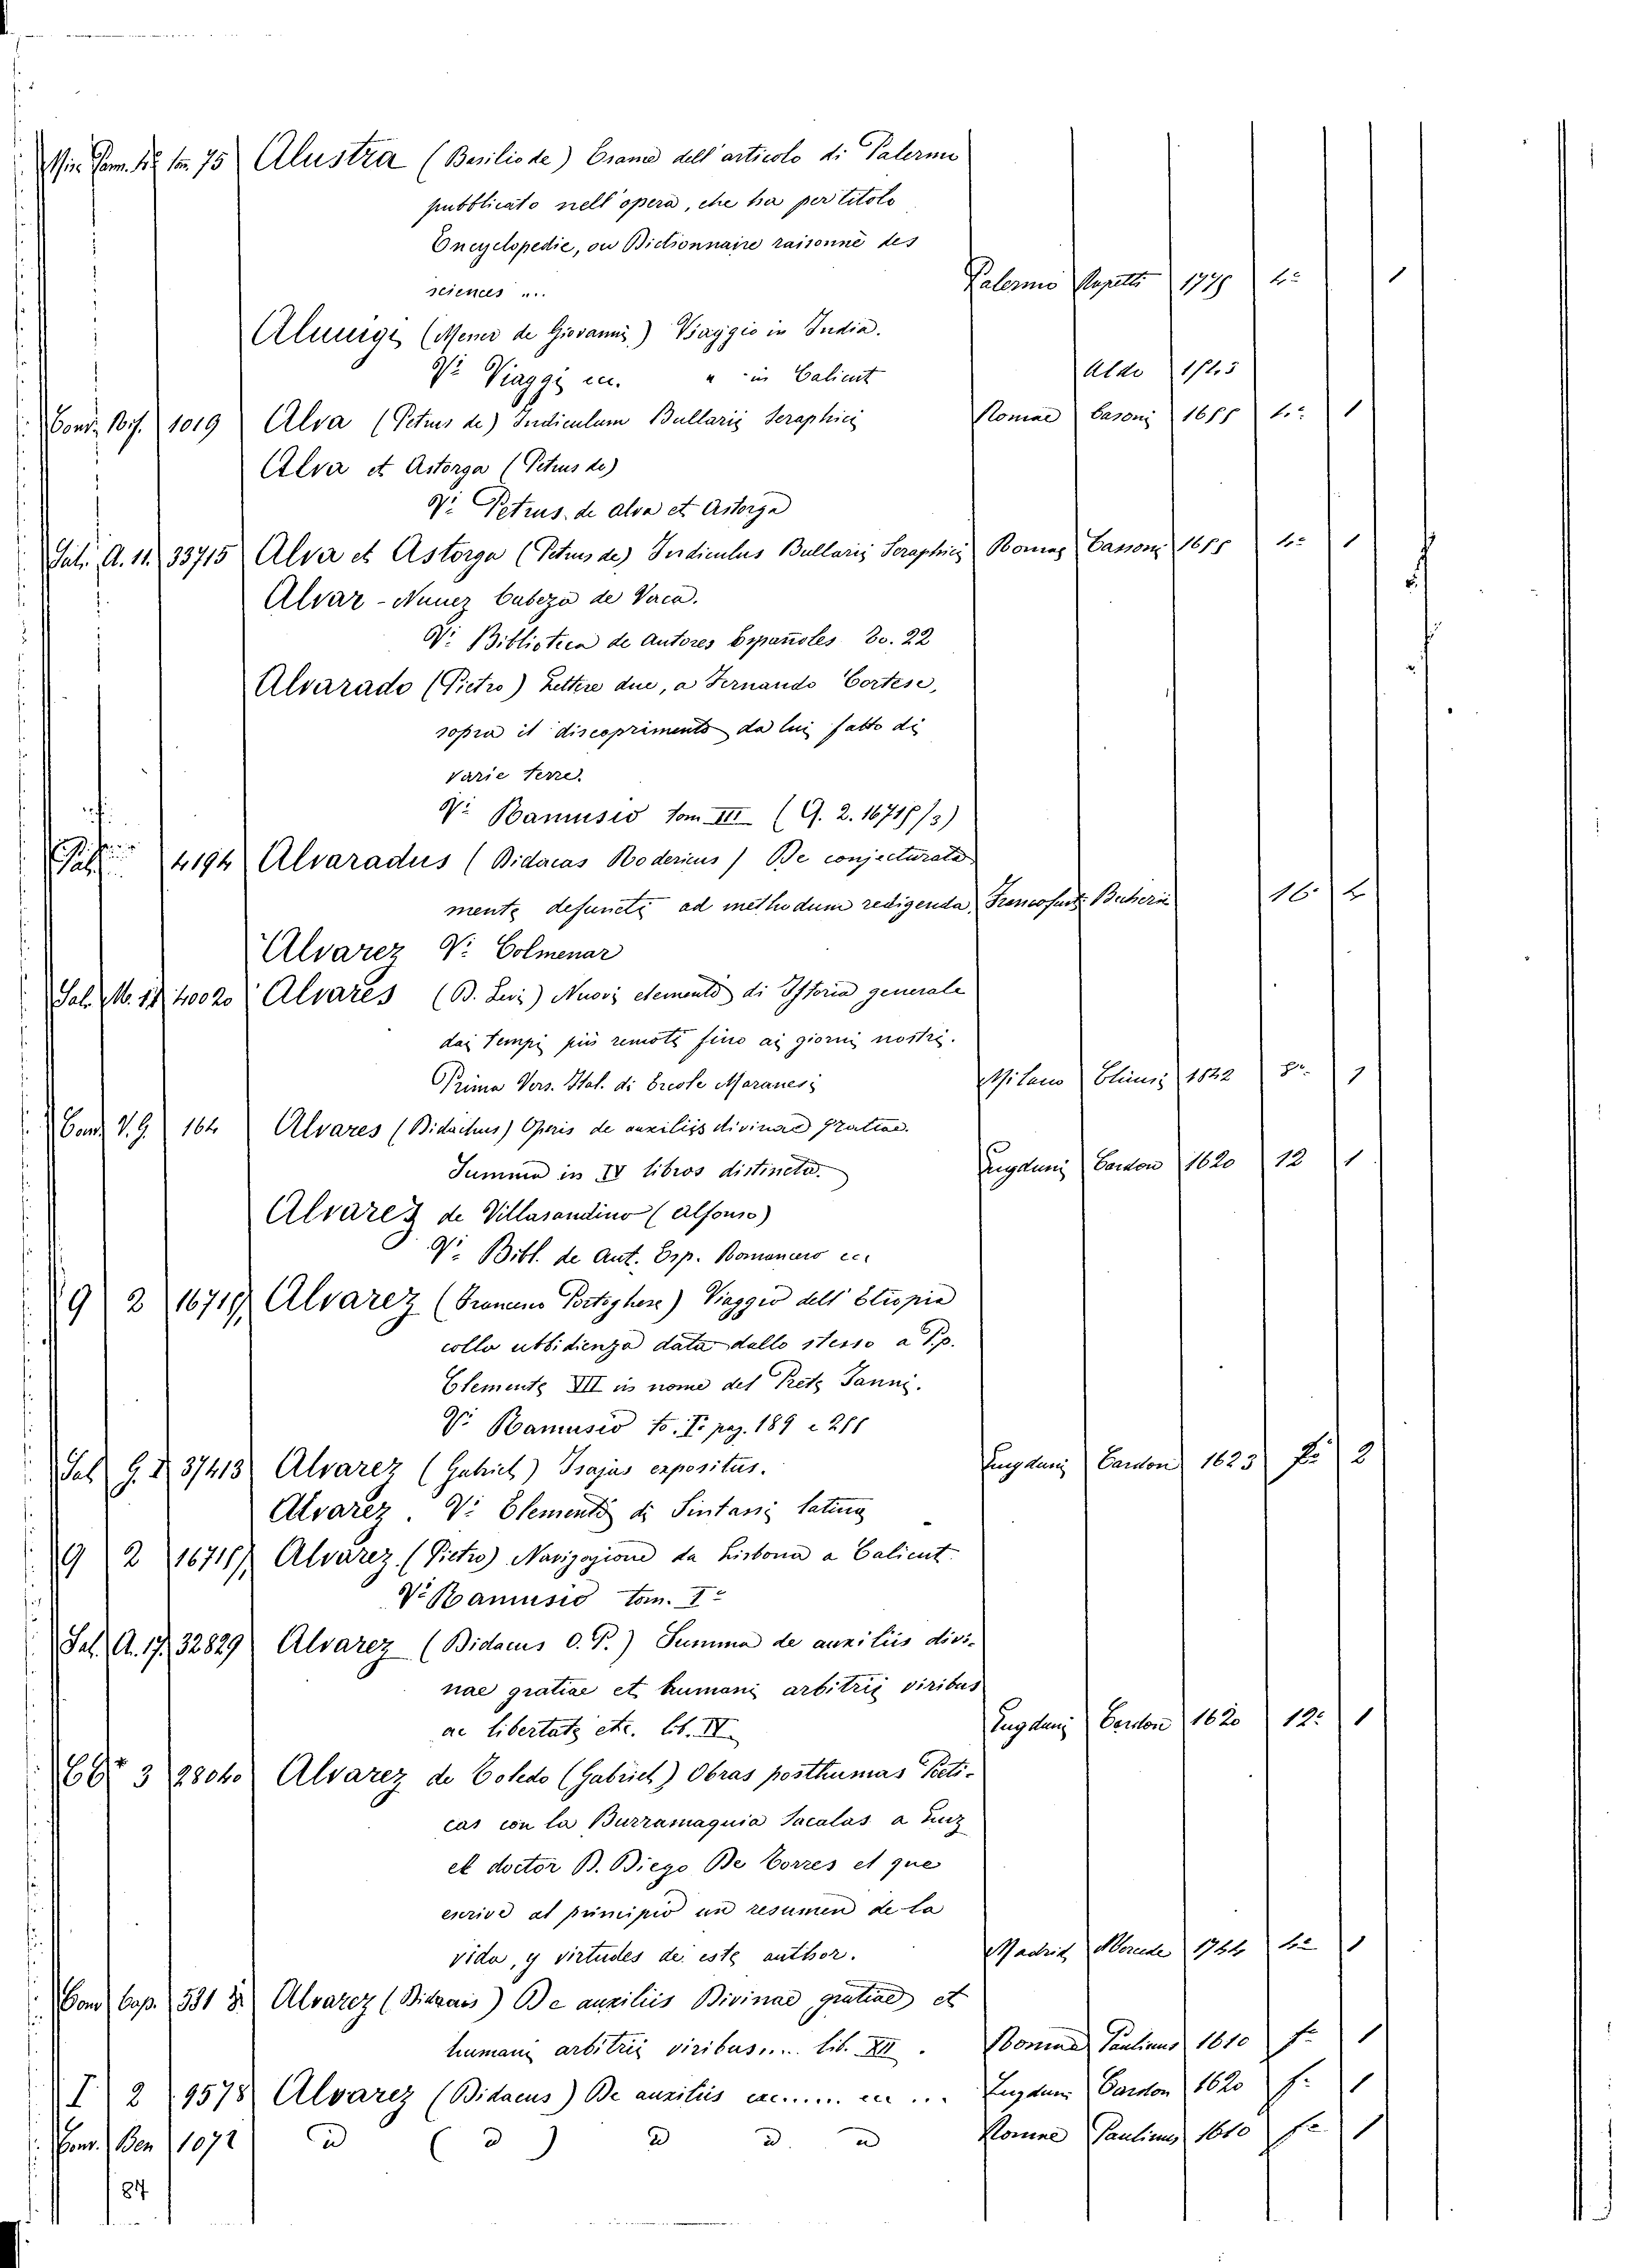 75 Alustra (Basilio de) Esame dell'articolo di Palermo
pubblicato nell'opera, che ha per titolo
Encyclopedie, ou Dictionnaire raisonné des
sciences ... Palermo Rapetti 1775 4° 1
Aluuigi (Mener de Giovanni) Viaggio in India.
V: Viaggi ec. " in Calicut Aldo 1545
Cond. 1019 Alva (Petrus de) Indiculum Bullarii Seraphici Romae Casoni 1655 4.° 1
Alva et Astorga (Petrus de)
V: Petrus de Alva et Astorga
Sal. A. 11. 33715 Alva et Astorga (Petrus de) Indiculus Bullarii Seraphici Romae Cassoni 1655 4° 1
Alvar-Nunez Cabeza de Vaca.
V: Biblioteca de Autores Españoles To. 22
Alvarado (Pietro) Lettere due, a Fernando Cortese,
sopra il discoprimento da lui fatto di
varie terre.
V: Ramusio tom III (G. 2. 16715/3)
Sal. 4194 Alvaradus (Didacus Rodericus) De conjecturata
mente defuncti ad methodum redigenda Francofurti Becheri 16° 2
Alvarez V: Colmenar
Sal. M. 14 40020 Alvares (D. Levi) Nuovi elementi di Istoria generale
dai tempi più remoti fino ai giorni nostri.
Prima Vers. Ital. di Ercole Maranesi Milano 1842 8° 1
Cond. V. G. 164 Alvares (Didachus) Operis de auxiliis divinae gratiae.
Summa in IV libros distincta. Lugduni Cardon 1620 12 1
Alvarez de Villasandino (Alfonso)
V: Bibl. de Aut. Esp. Romancero ec.
G 2 16715/1 Alvarez (Francesco Portoghese) Viaggio dell'Etiopia
colla ubbidienza data dallo stesso a P.p.
Clemente VII in nome del Prete Janni.
V: Ramusio to. I° pag. 189 e 255
Sal G. 37413 Alvarez (Gabriel) Isajas expositus. Lugduni Cardon 1623 f° 2
Alvarez. V: Elementi di Sintassi latina
G 2 16715/1 Alvarez (Pietro) Navigazione da Lisbona a Calicut
V: Ramusio tom. I°
Sal. A. 17. 32829 Alvarez (Didacus O. P.) Summa de auxiliis divi-
nae gratiae et humani arbitrii viribus
ac libertate etc. lib. IV Lugduni Cardon 1620 12° 1
3 28040 Alvarez de Toledo (Gabriel) Obras posthumas Poeti-
cas con la Burromaquia Sacalas a Luz
el doctor D. Diego De Torres el que
escrive al principio un resumen de la
vida, y virtudes de este author. Madrid 1744 4° 1
Cond Cap. 531 Alvarez (Didacus) De auxiliis Divinae gratiae et
humani arbitrii viribus.... lib. XII. Romae Paulinus 1610 f° 1
I 2 9578 Alvarez (Didacus) De auxiliis ec...... ec ... Lugduni Cardon 1620 f° 1
Conv. Ben 1072 d (d) d d d Romae Paulinus 1610 f° 1
84